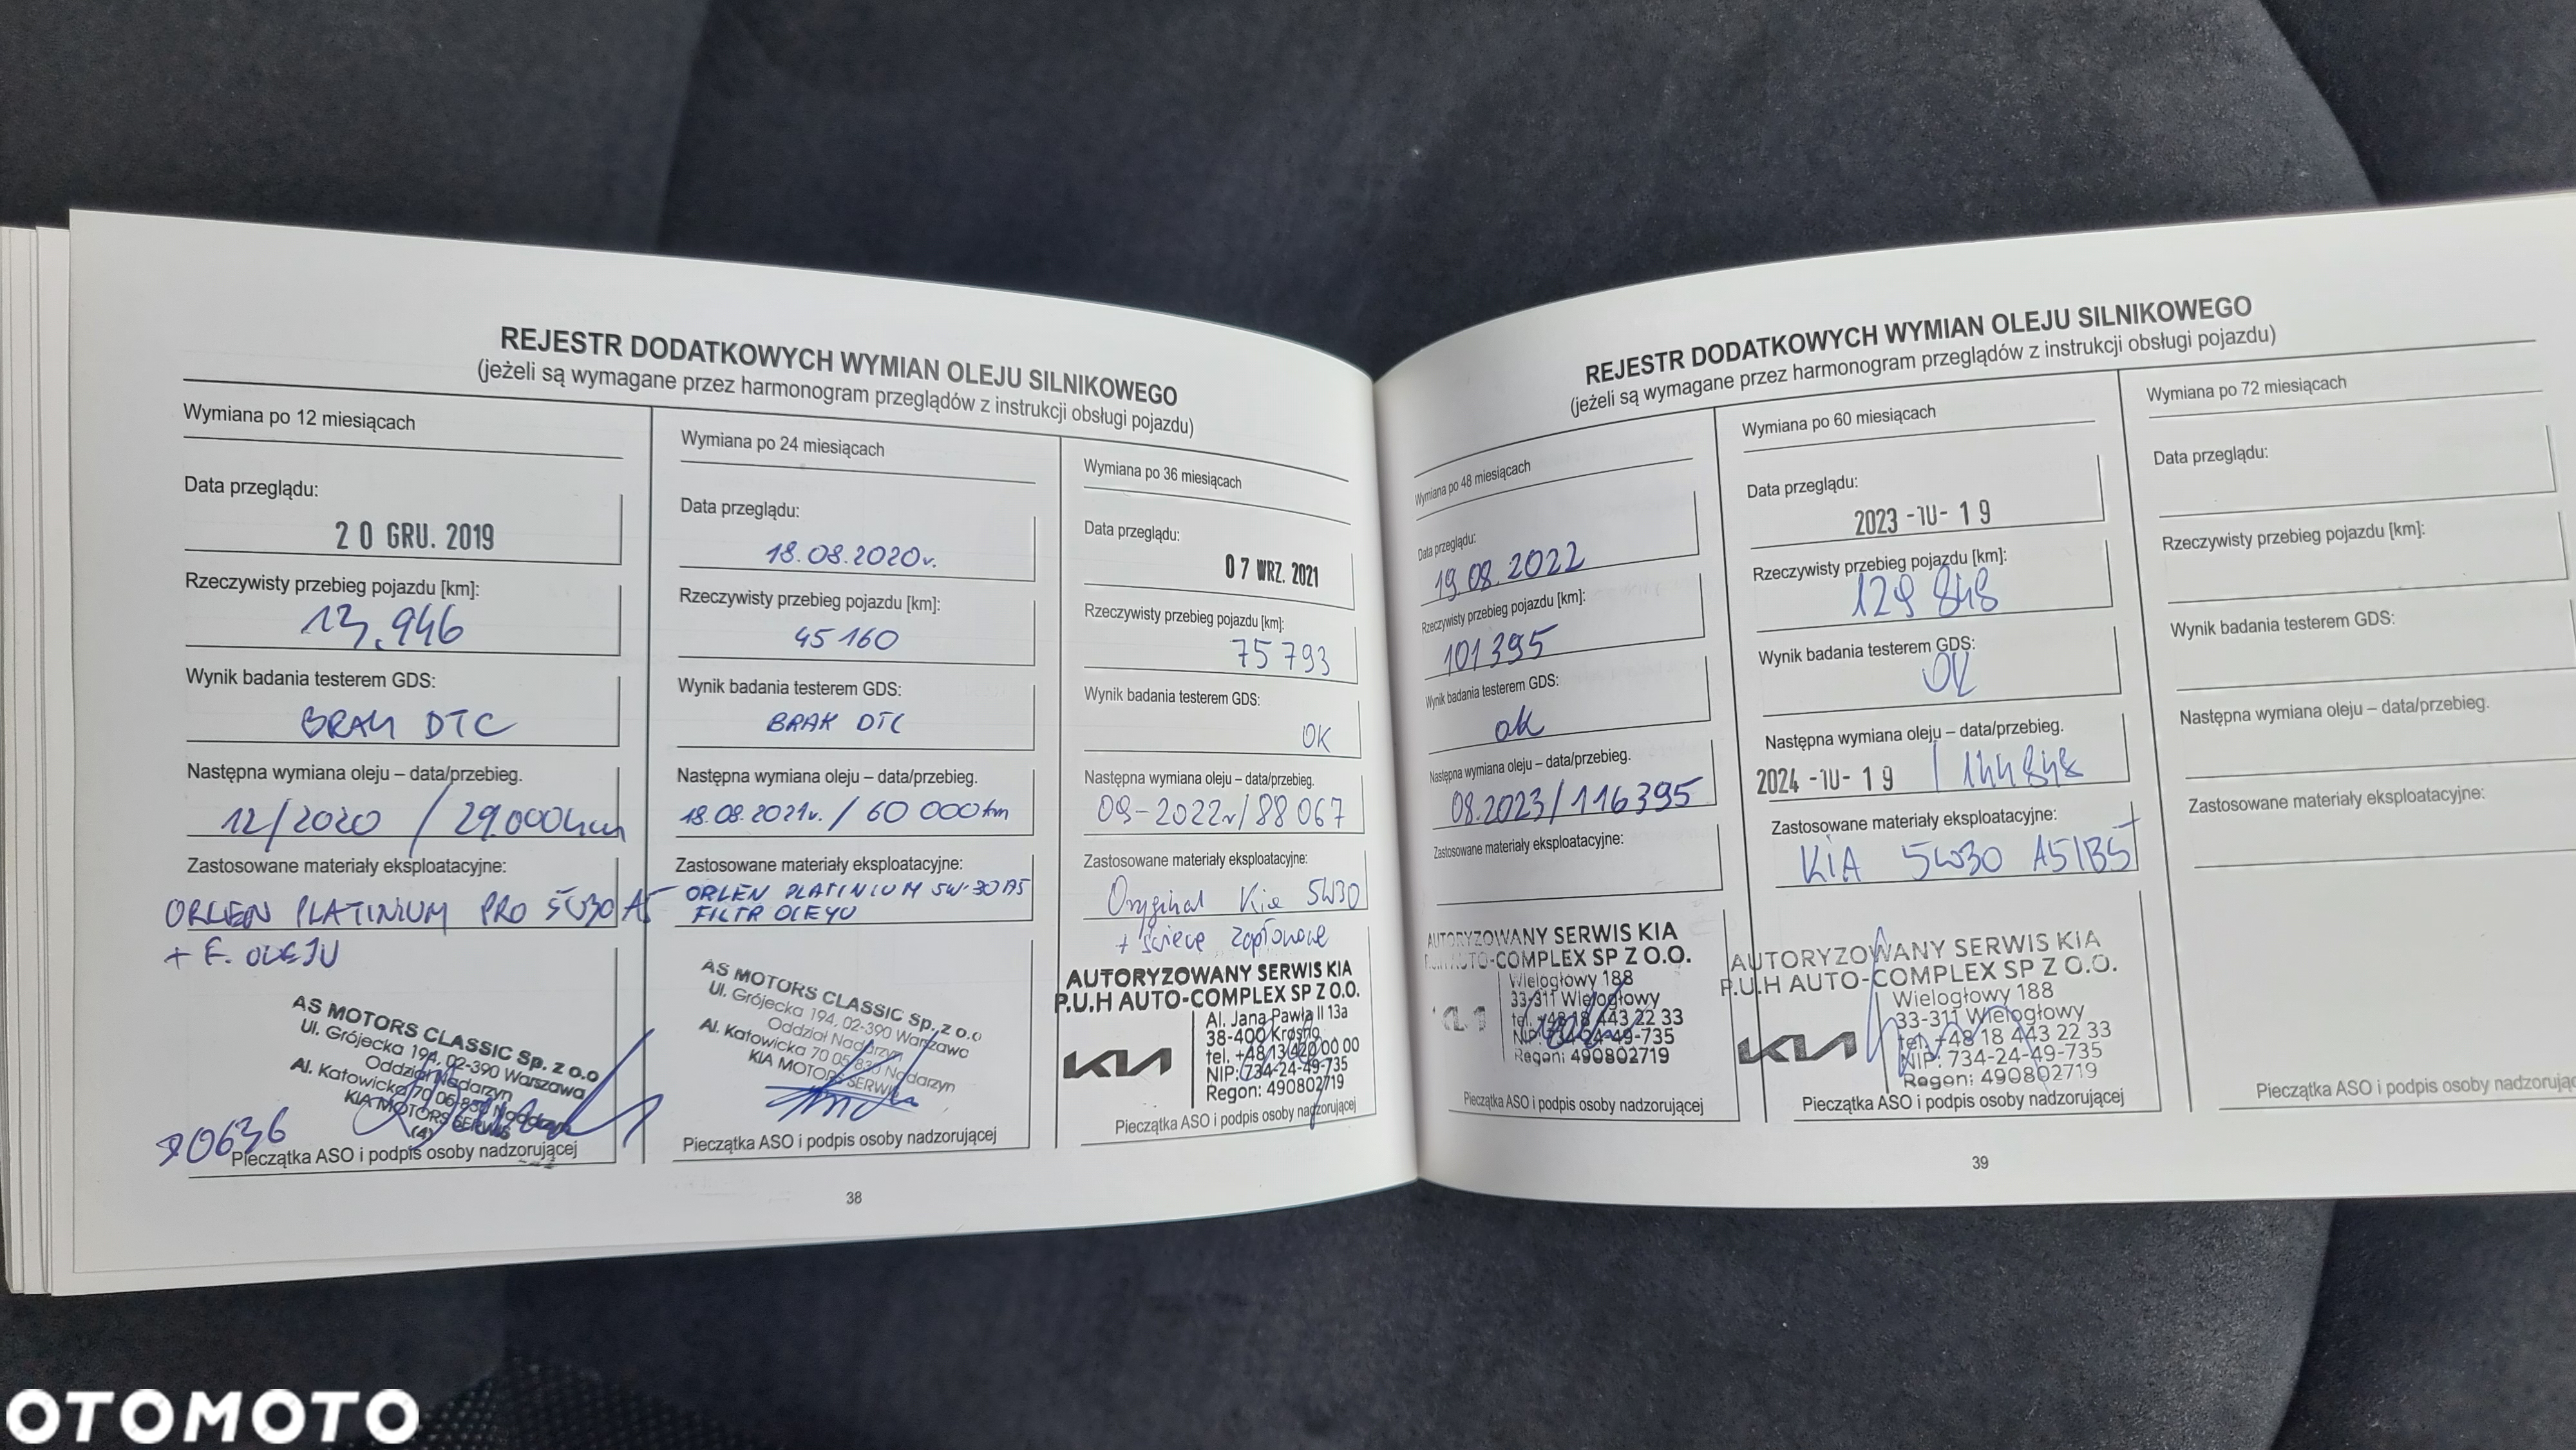 REJESTR DODATKOWYCH WYMIAN OLEJU SILNIKOWEGO
(jeżeli są wymagane przez harmonogram przeglądów z instrukcji obsługi pojazdu)
Wymiana po 12 miesiącach
Data przeglądu:
20 GRU. 2019
Rzeczywisty przebieg pojazdu [km]:
13.946
Wynik badania testerem GDS:
BRAK DTC
Następna wymiana oleju – data/przebieg.
12/2020 / 29.000km
Zastosowane materiały eksploatacyjne:
ORLEN PLATINIUM PRO 5W30 A5
+ F. OLEJU
AS MOTORS CLASSIC Sp. z o.o
Ul. Grójecka 194, 02-390 Warszawa
Oddział Nadarzyn
Al. Katowicka 70 05-830 Nadarzyn
KIA MOTORS SERWIS
(4)
Pieczątka ASO i podpis osoby nadzorującej
Wymiana po 24 miesiącach
Data przeglądu:
18.08.2020r.
Rzeczywisty przebieg pojazdu [km]:
45 160
Wynik badania testerem GDS:
BRAK DTC
Następna wymiana oleju – data/przebieg.
18.08.2021r. / 60 000km
Zastosowane materiały eksploatacyjne:
ORLEN PLATINIUM 5W-30 A5
FILTR OLEJU
AS MOTORS CLASSIC Sp. z o.o
Ul. Grójecka 194, 02-390 Warszawa
Oddział Nadarzyn
Al. Katowicka 70 05-830 Nadarzyn
KIA MOTORS SERWIS
Pieczątka ASO i podpis osoby nadzorującej
Wymiana po 36 miesiącach
Data przeglądu:
07 WRZ. 2021
Rzeczywisty przebieg pojazdu [km]:
75 793
Wynik badania testerem GDS:
OK
Następna wymiana oleju – data/przebieg.
09-2022r/88 067
Zastosowane materiały eksploatacyjne:
Oryginal Kia 5W30
+ świece zapłonowe
AUTORYZOWANY SERWIS KIA
P.U.H AUTO-COMPLEX SP Z O.O.
KIA
Al. Jana Pawła II 13a
38-400 Krosno
tel. +48 13 420 00 00
NIP: 734-24-49-735
Regon: 490802719
Pieczątka ASO i podpis osoby nadzorującej
38
REJESTR DODATKOWYCH WYMIAN OLEJU SILNIKOWEGO
(jeżeli są wymagane przez harmonogram przeglądów z instrukcji obsługi pojazdu)
Wymiana po 48 miesiącach
Data przeglądu:
19.08.2022
Rzeczywisty przebieg pojazdu [km]:
101 395
Wynik badania testerem GDS:
ok
Następna wymiana oleju – data/przebieg.
08.2023/116395
Zastosowane materiały eksploatacyjne:
AUTORYZOWANY SERWIS KIA
P.U.H AUTO-COMPLEX SP Z O.O.
KIA
Wielogłowy 188
33-311 Wielogłowy
tel. +48 18 443 22 33
NIP: 734-24-49-735
Regon: 490802719
Pieczątka ASO i podpis osoby nadzorującej
Wymiana po 60 miesiącach
Data przeglądu:
2023 -10- 19
Rzeczywisty przebieg pojazdu [km]:
129 848
Wynik badania testerem GDS:
OK
Następna wymiana oleju – data/przebieg.
2024 -10- 19 / 144848
Zastosowane materiały eksploatacyjne:
KIA 5W30 A5/B5
AUTORYZOWANY SERWIS KIA
P.U.H AUTO-COMPLEX SP Z O.O.
KIA
Wielogłowy 188
33-311 Wielogłowy
tel. +48 18 443 22 33
NIP: 734-24-49-735
Regon: 490802719
Pieczątka ASO i podpis osoby nadzorującej
Wymiana po 72 miesiącach
Data przeglądu:
Rzeczywisty przebieg pojazdu [km]:
Wynik badania testerem GDS:
Następna wymiana oleju – data/przebieg.
Zastosowane materiały eksploatacyjne:
Pieczątka ASO i podpis osoby nadzorując
39
OTOMOTO